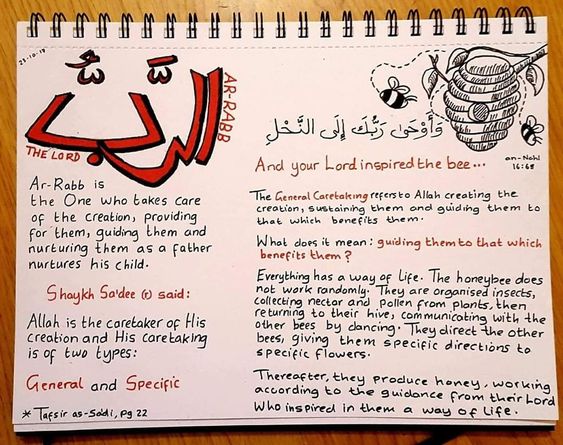 23-10-17
الرَّبُّ
AR-RABB
THE LORD
Ar-Rabb is
the One who takes care
of the creation, providing
for them, guiding them and
nurturing them as a father
nurtures his child.
Shaykh Sa'dee (r) said:
Allah is the caretaker of His
creation and His caretaking
is of two types:
General and Specific
* Tafsir as-Sa'di, pg 22
وَأَوْحَىٰ رَبُّكَ إِلَى النَّحْلِ
And your Lord inspired the bee...
an-Nahl
16:68
The General Caretaking refers to Allah creating the
creation, sustaining them and guiding them to
that which benefits them.
What does it mean: guiding them to that which
benefits them?
Everything has a way of life. The honeybee does
not work randomly. They are organised insects,
collecting nectar and pollen from plants, then
returning to their hive, communicating with the
other bees by dancing. They direct the other
bees, giving them specific directions to
specific flowers.
Thereafter, they produce honey, working
according to the guidance from their Lord
Who inspired in them a way of life.